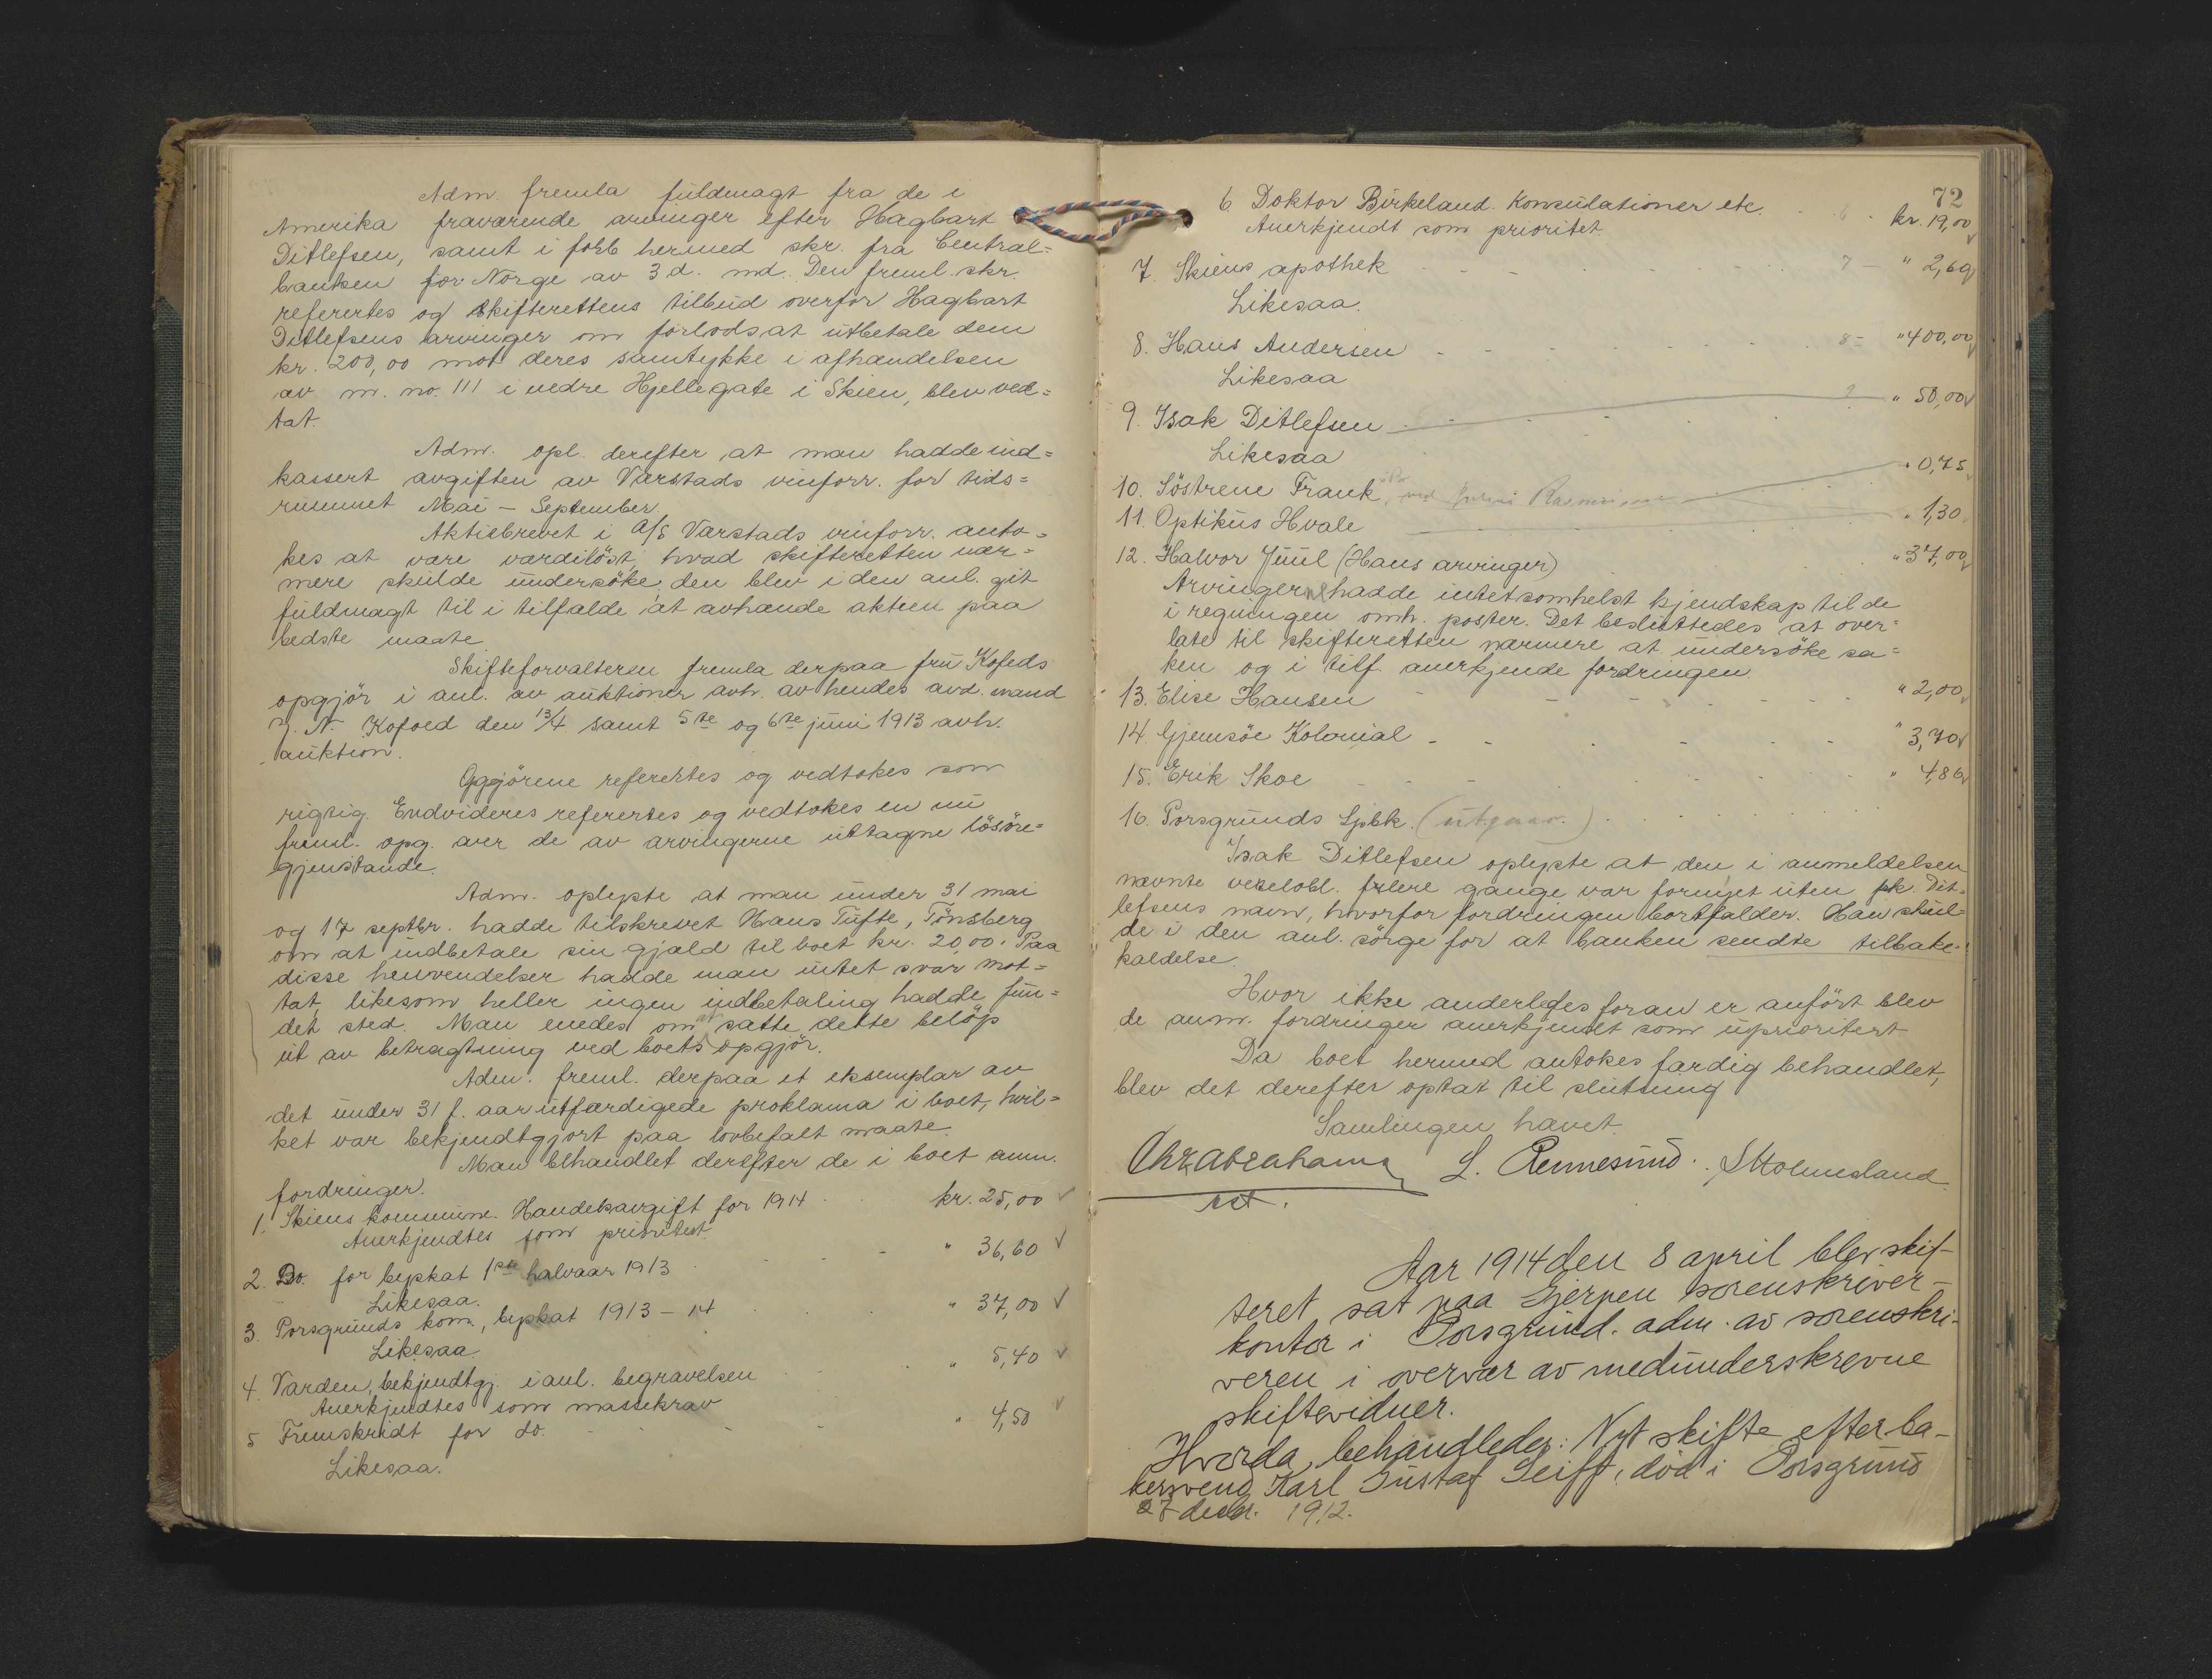 Adm. fremla fuldmagt fra de i
Amerika fraværende arvinger efter Hagbart
Ditlefsen, samt i forb hermed skr. fra Central=
banken for Norge av 3 d. md. Den freml. skr.
referertes og skifterettens tilbud overfor Hagbart
Ditlefsens arvinger om forlods at utbetale dem
kr. 200,00 mot deres samtykke i afhandelsen
av m. no. 111 i nedre Hjellegate i Skien, blev ved=
tat.
Adm. opl. derefter at man hadde ind=
kassert avgiften av Varstads vinforr. for tids=
rummet Mai - September.
Aktiebrevet i A/S Varstads vinforr. anto=
kes at være værdiløst, hvad skifteretten nær=
mere skulde undersöke; den blev i den anl. git
fuldmagt til i tilfælde at avhænde aktien paa
bedste maate.
Skifteforvalteren fremla derpaa fru Kofeds
opgjör i anl. av auktioner avh. av hendes avd. mand
J. N. Kofoed den 13/4 samt 5te og 6te juni 1913 avh.
auktion.
Opgjörene referertes og vedtokes som
rigtig. Endvideres referertes og vedtokes en nu
freml. opg. over de av arvingerne uttagne lösöre=
gjenstande.
Adm. oplyste at man under 31 mai
og 17 septbr. hadde tilskrevet Hans Tufte, Tönsberg
om at indbetale sin gjæld til boet kr. 20,00. Paa
disse henvendelser hadde man intet svar mot=
tat, likesom heller ingen indbetaling hadde fun=
det sted. Man enedes om at sætte dette belöp
ut av betragtning ved boets opgjör.
Adm. freml. derpaa et eksemplar av
det under 31 f. aar utfærdigede proklama i boet, hvil=
ket var bekjendtgjort paa lovbefalt maate.
Man behandlet derefter de i boet anm.
fordringer.
1. Skiens kommune. Handelsavgift for 1914 kr. 25,00
Anerkjendtes som prioritert.
2. Do. for byskat 1ste halvaar 1913 " 36,60
Likesaa.
3. Porsgrunds kom., byskat 1913 - 14 " 37,00
Likesaa
4. Varden, bekjendtgj. i anl. begravelsen " 5,40
Anerkjendtes som massekrav
5 Fremskridt for do. " 4,50
Likesaa.
72
6. Doktor Birkeland. Konsulationer etc. 6 kr. 19,00
Anerkjendt som prioritet.
7. Skiens apothek 7 - " 2,60
Likesaa.
8. Hans Andersen 8 - " 400,00
Likesaa
9. Isak Ditlefsen 9 " 50,00
Likesaa
10. Söstrene Frank, ved " 0,75
11. Optikus Hvale " 1,30
12. Halvor Juul (Hans arvinger) " 37,00
Arvingerne hadde intetsomhelst kjendskap til de
i regningen omh. poster. Det besluttedes at over=
late til skifteretten nærmere at undersöke sa=
ken og i tilf. anerkjende fordringen.
13. Elise Hansen " 2,00
14. Gjemsöe Kolonial " 3,70
15. Erik Skoe " 4,86
16. Porsgrunds Spbk. (utgaar.)
Isak Ditlefsen oplyste at den i anmeldelsen
nævnte vexelobl. flere gange var fornyet uten sk. Dit=
lefsens navn, hvorfor fordringen bortfalder. Han skul=
de i den anl. sörge for at banken sendte tilbake=
kaldelse.
Hvor ikke anderledes foran er anfört blev
de anm. fordringer anerkjendt som uprioritert.
Da boet hermed antokes færdig behandlet,
blev det derefter optat til slutning
Samlingen hævet.
Chr Abrahams L. Rennesund. S Holmesland
est.
Aar 1914 den 8 april blev skif-
teret sat paa Gjerpen sorenskriver-
kontor i Porsgrund. adm. av sorenskri-
veren i overvær av medunderskrevne
skiftevidner.
Hvorda behandledes: Nyt skifte efter ba-
kersvend Karl Gustaf Seiff, död i Porsgrund
27 decbr. 1912.